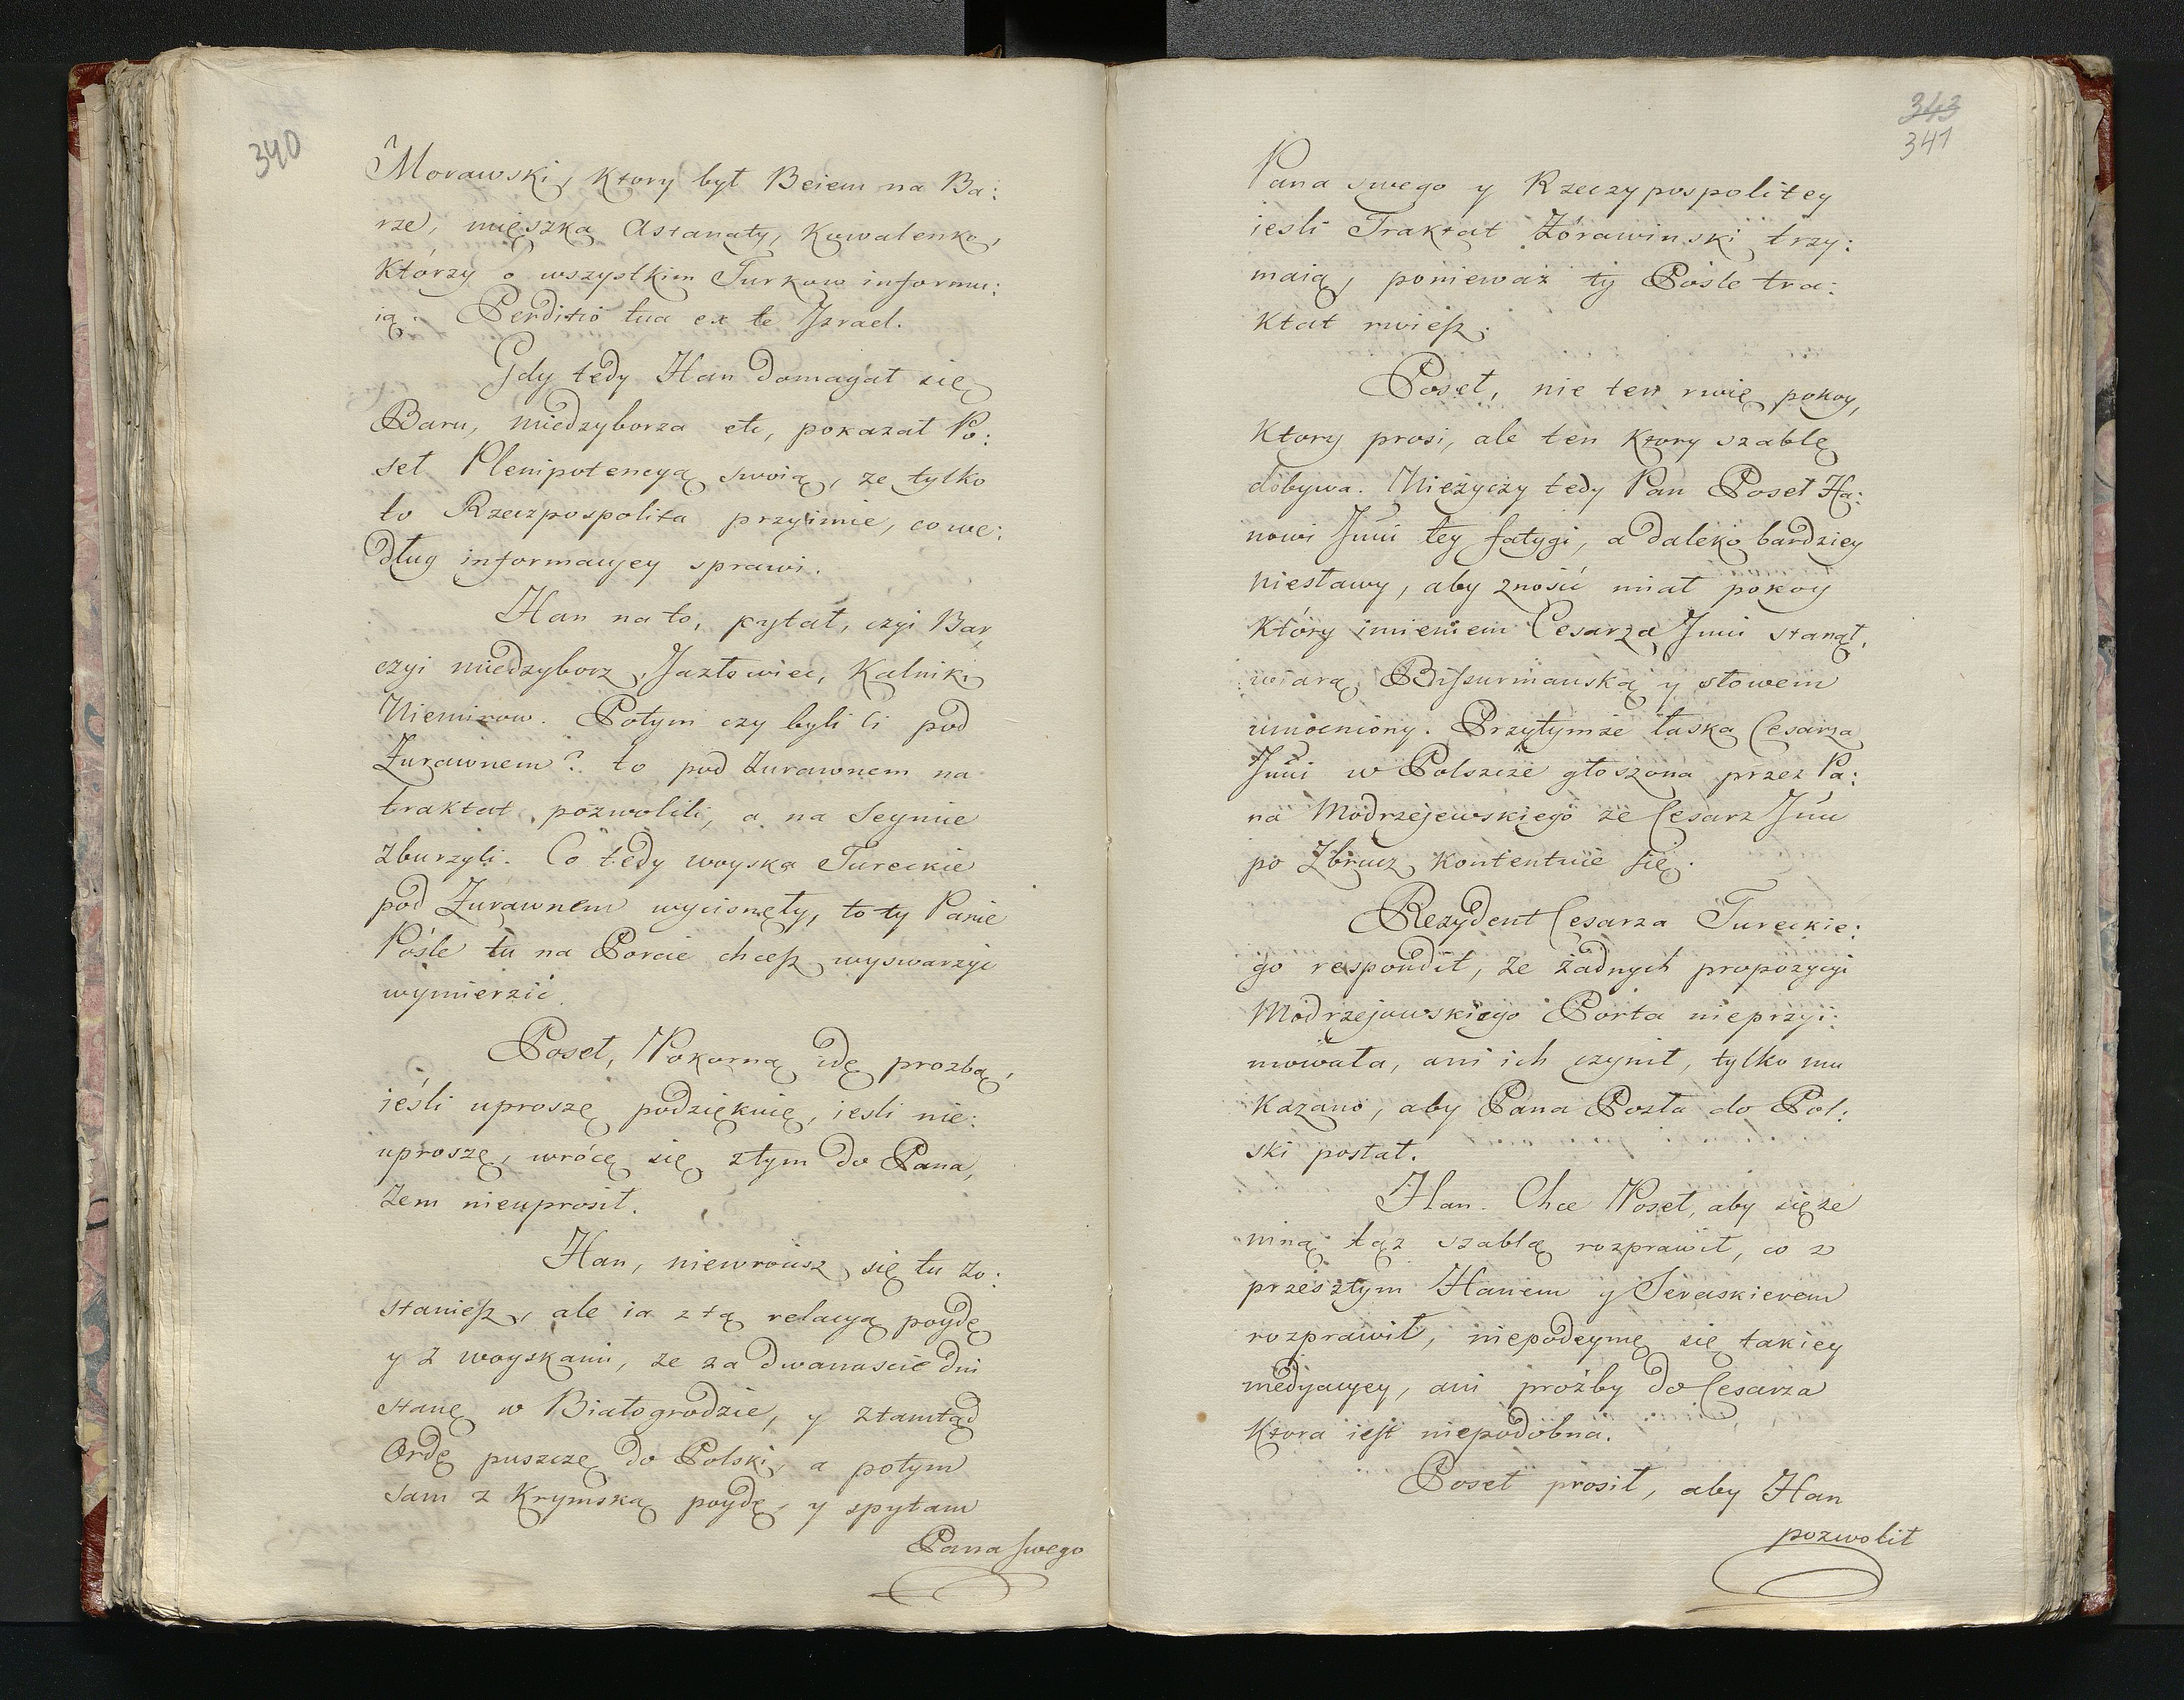 340
Morawski, Ktory był Beiem na Ba:
rze, mięszka Astanaty, Kowalenko,
Którzy o wszystkim Turkow informu:
ią. Perditio tua ex te Jzrael.
Gdy tedy Han domagał się
Baru, miedzyborza etc, pokazał Po:
seł Plenipotencyą swoią, ze tylko
to Rzeczpospolita przyimie, co we:
dług informacyey sprawi.
Han na to, pytał, czyi Bar,
czyi miedzyborz, Jazłowiec, Kalnik,
Niemirow. Potym czy byli ci pod
Żurawnem? to pod Żurawnem na
traktat pozwolili, a na Seymie
zburzyli. Co tedy woyska Tureckie
pod Żurawnem wycisnęły, to ty Panie
Pośle tu na Porcie chceſz wyswarzyć
wymierzić.
Poseł, Pokorną idę prozbą,
ieśli uproszę podziękuię, iesli nie:
uproszę, wrócę się ztym do Pana,
żem nieuprosił.
Han, niewrócisz się tu zo:
stanieſz, ale ia z tą relacyą poydę
y z woyskami, ze za dwanascie dni
stanę w Białogrodzie, y ztamtąd
Ordę puszczę do Polski, a potym
sam z Krymską poydę, y spytam
Pana swego
343
341
Pana swego y Rzeczypospolitey
iesli Traktat Żórawinski trzy:
maią, ponieważ ty Pośle tra:
ktat rwieſz.
Poseł, nie ten rwię pokoy,
Ktory prosi, ale ten Ktory szablę
dobywa. Nieżyczy tedy Pan Poseł Ha:
nowi Jmci tey fatygi, a daleko bardziey
niesławy, aby znosić miał pokoy
Który imieniem Cesarza Jmci stanął,
wiarą Biſurmanską y słowem
umocniony. Przytymże łaska Cesarza
Jmci w Polszcze głoszona przez Pa:
na Modrzejewskiego ze Cesarz Jmć
po Zbrucz kontentuie się.
Rezydent Cesarza Tureckie:
go respondit, że żadnych propozycyi
Modrzejowskiego Porta nieprzyi:
mowała, ani ich czynił, tylko mu
Kazano, aby Pana Posła do Pol:
ski posłał.
Han. Chce Poseł, aby się ze
mną tąż szablą rozprawił, co z
przeszłym Hanem y Seraskierem
rozprawił, niepodeymę się takiey
medyacyey, ani prożby do Cesarza
Ktora ieſt niepodobna.
Poseł prosił, aby Han
pozwolił